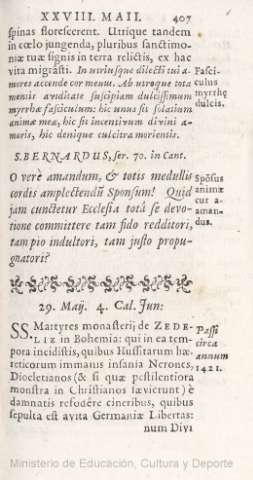 XXVIII. MAII. 407
spinas florescerent. Utrique tandem
in cœlo jungenda, pluribus sanctimo-
niæ tuæ signis in terra relictis, ex hac
vita migrâsti. In utriusque dilecti tui a-
mores accende cor meum. Ab utroque tota
mentis aviditate suscipiam dulcissimum
myrrhæ fasciculum: hic unus sit solatium
animæ meæ, hic sit incentivum divini a-
moris, hic denique culcitra morientis.
Fasci-
culus
myrrhę
dulcis.
S. BERNARDUS, ser. 70. in Cant.
O verè amandum, & totis medullis
cordis amplectendũ Sponsum! Quid
jam cunctetur Ecclesia totâ se devo-
tione committere tam fido redditori,
tam pio indultori, tam justo propu-
gnatori?
Spõsus
animæ
cur a-
man-
dus.
29. Maij. 4. Cal. Jun:
SS. Martyres monasterij de ZEDE-
LIZ in Bohemia: qui in ea tem-
pora incidistis, quibus Hussitarum hæ-
reticorum immanis insania Nerones,
Diocletianos (& si quæ pestilentiora
monstra in Christianos sævierunt) è
damnatis refodêre cineribus, quibus
sepulta est avita Germaniæ Libertas:
num Divi
Passi
circa
annum
1421.
Ministerio de Educación, Cultura y Deporte